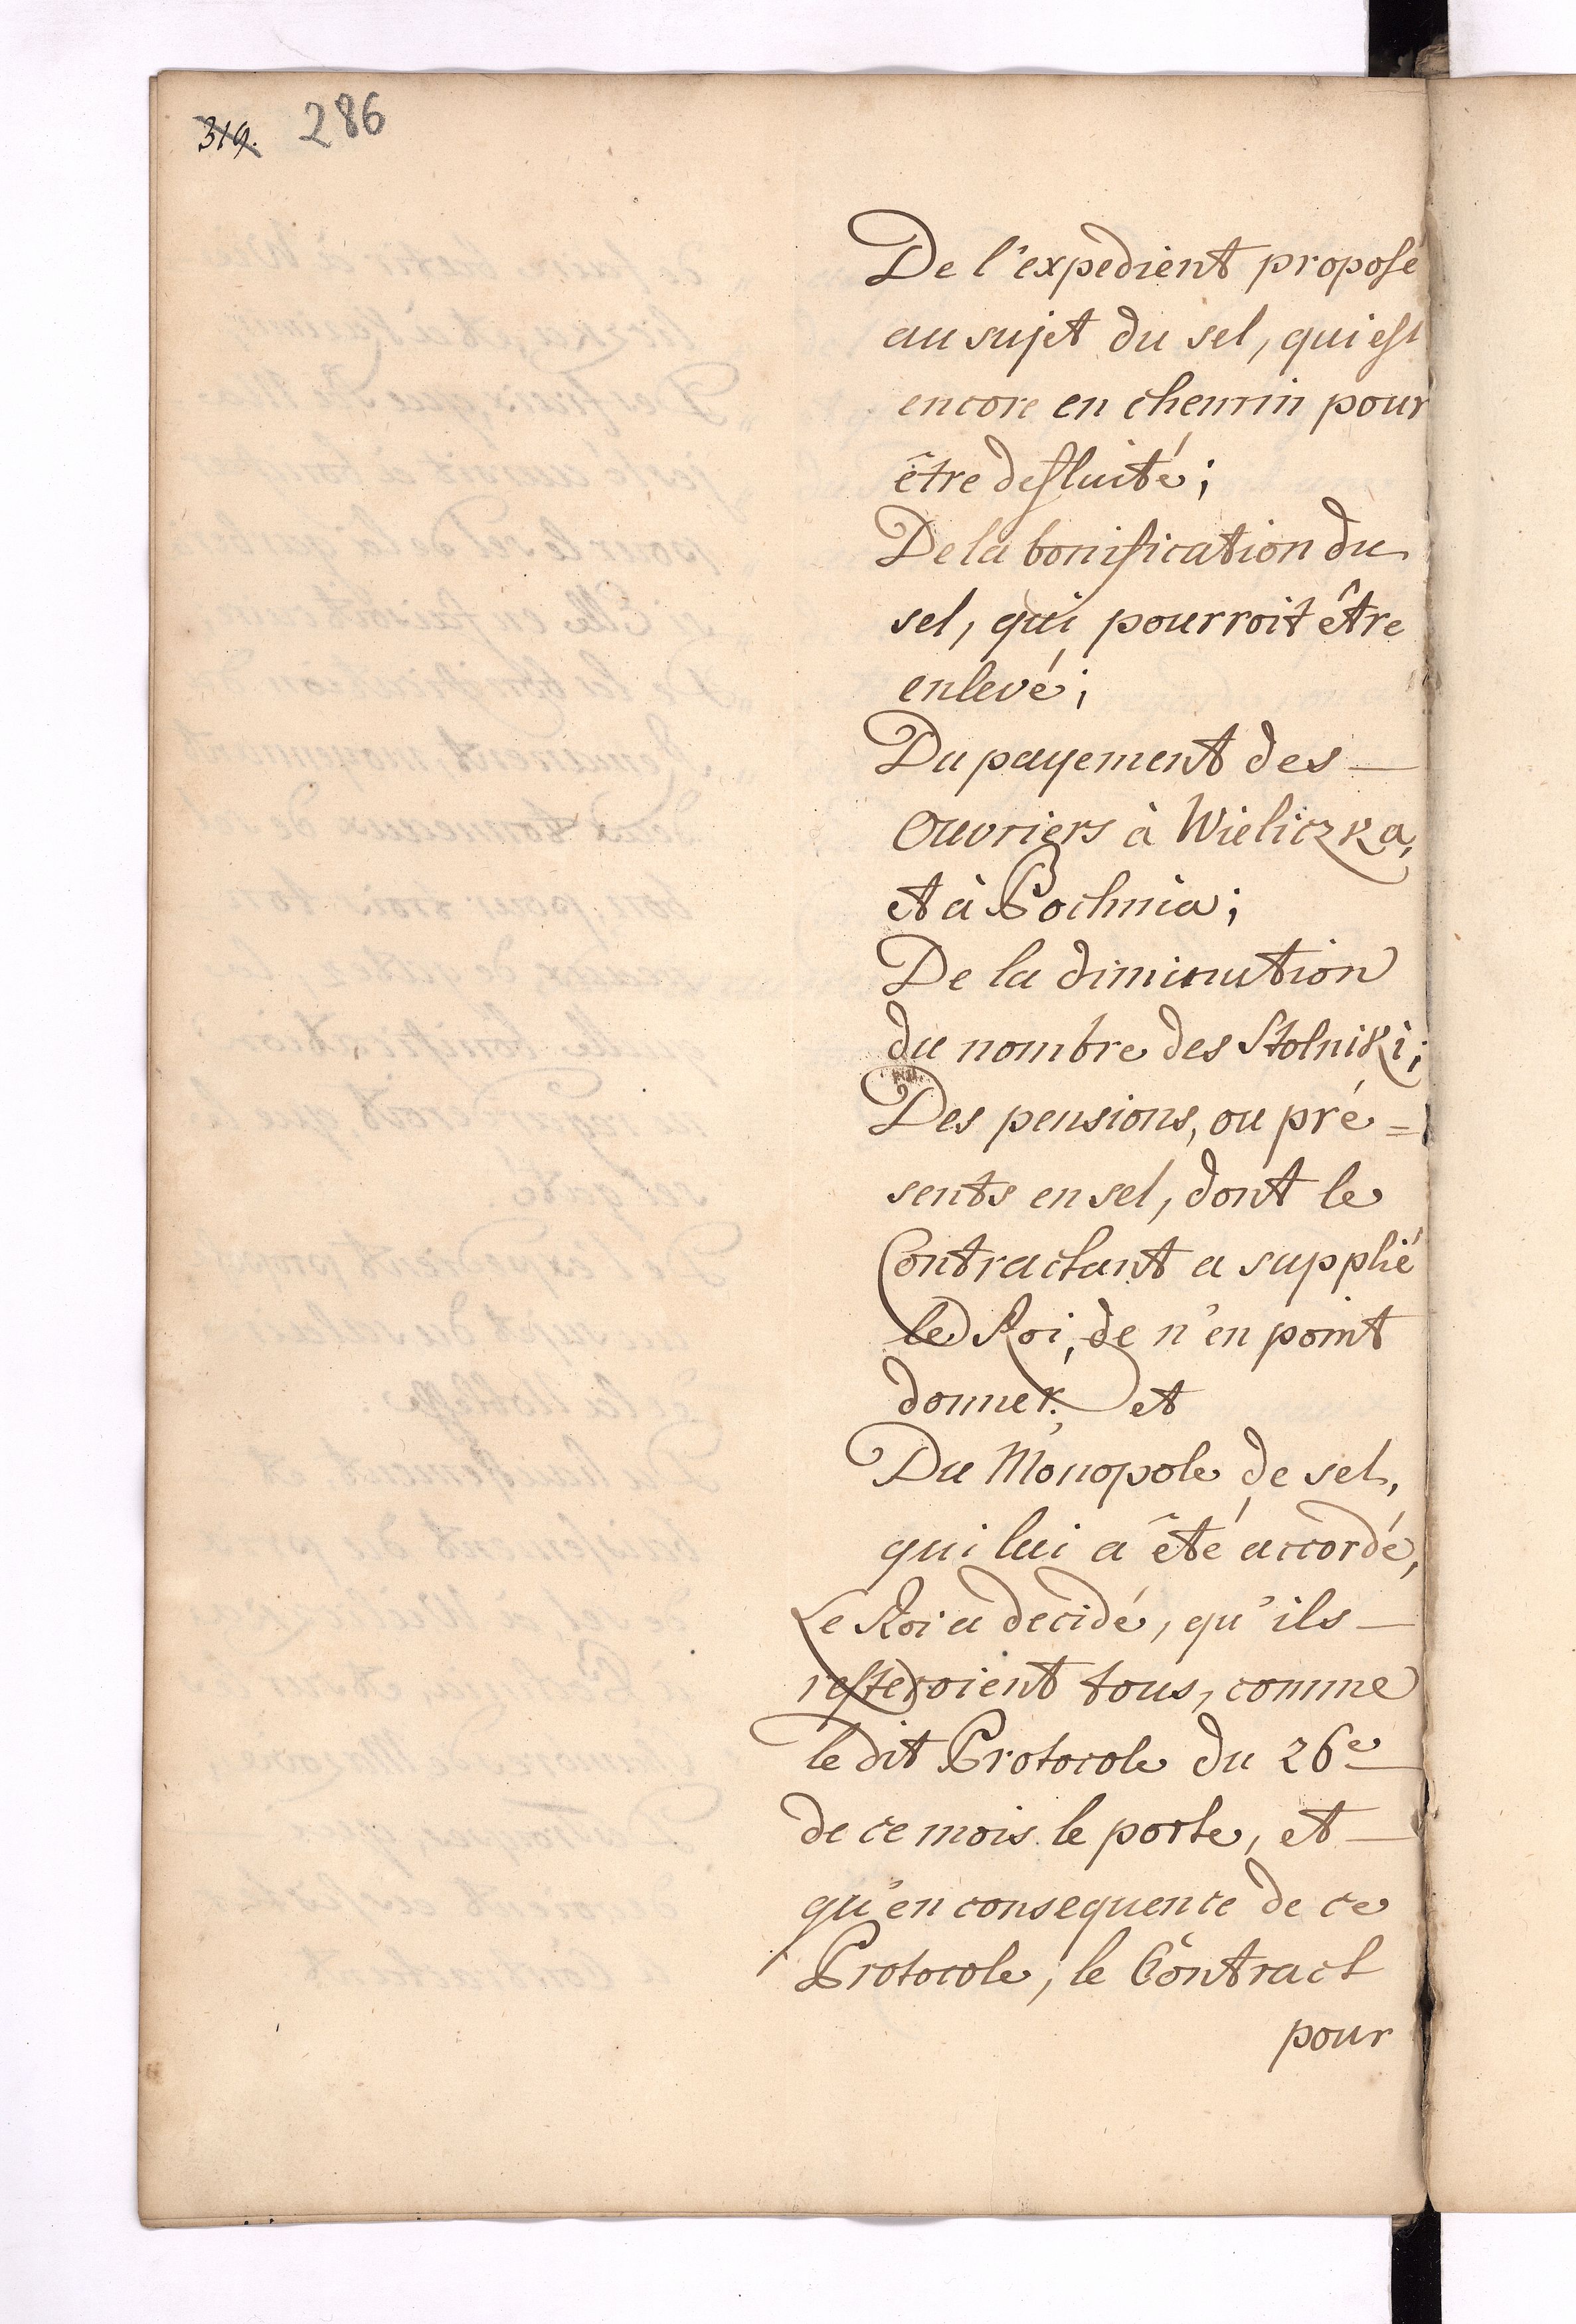 319. 286
De l'expedient proposé
au sujet du sel, qui est
encore en chemin pour
être defluité;
De la bonification du
sel, qui pourroit être
enlevé;
Du payement des —
Ouvriers à Wieliczka,
et à Bochnia;
De la diminution
du nombre des Stolniki;
Des pensions, ou pré=
sents en sel, dont le
Contractant a supplié
le Roi, de n'en point
donner; et
Du Monopole de sel,
qui lui a êté accordé,
Le Roi a decidé, qu'ils —
resteroient tous, comme
le dit Protocole du 26e
de ce mois le porte, et —
qu'en consequence de ce
Protocole, le Contract
pour